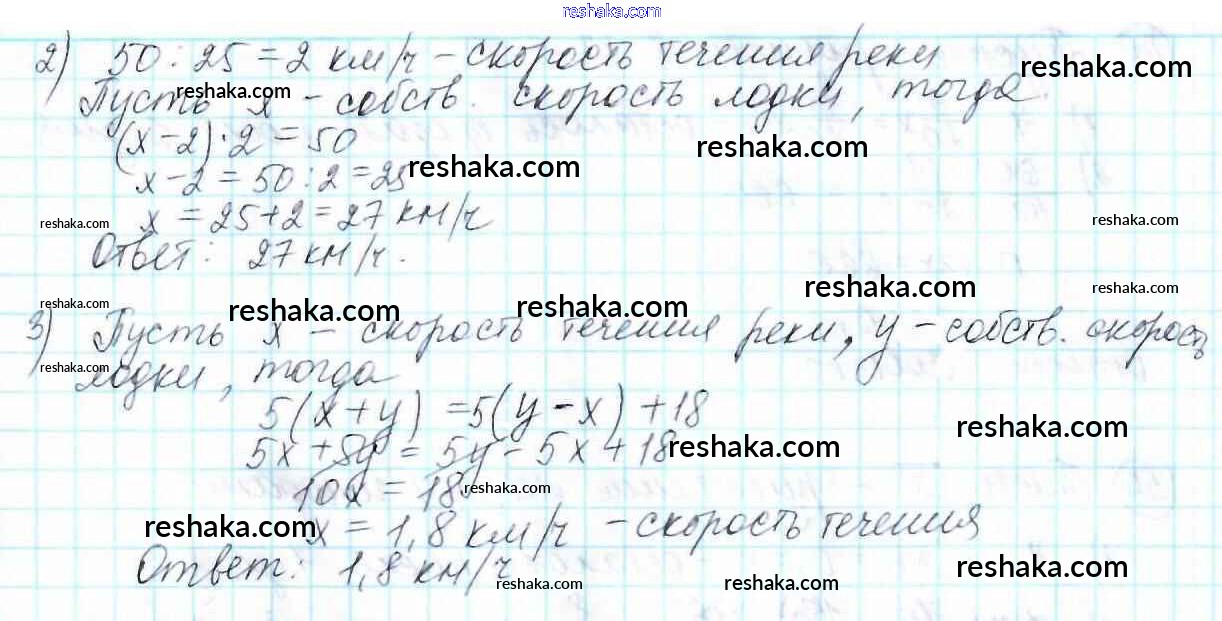 reshaka.com
2) 50 : 25 = 2 км/ч – скорость течения реки
reshaka.com
Пусть x – собств. скорость лодки, тогда
reshaka.com
(x-2)·2 = 50
reshaka.com
x-2 = 50:2 = 25
reshaka.com
x = 25+2 = 27 км/ч
reshaka.com
reshaka.com
Ответ: 27 км/ч.
reshaka.com
reshaka.com
reshaka.com
reshaka.com
reshaka.com
3) Пусть x – скорость течения реки, y – собств. скорость
reshaka.com
лодки, тогда
5(x+y) = 5(y-x) + 18
reshaka.com
5x + 5y = 5y - 5x + 18
reshaka.com
10x = 18
reshaka.com
reshaka.com
x = 1,8 км/ч – скорость течения
Ответ: 1,8 км/ч
reshaka.com
reshaka.com
reshaka.com